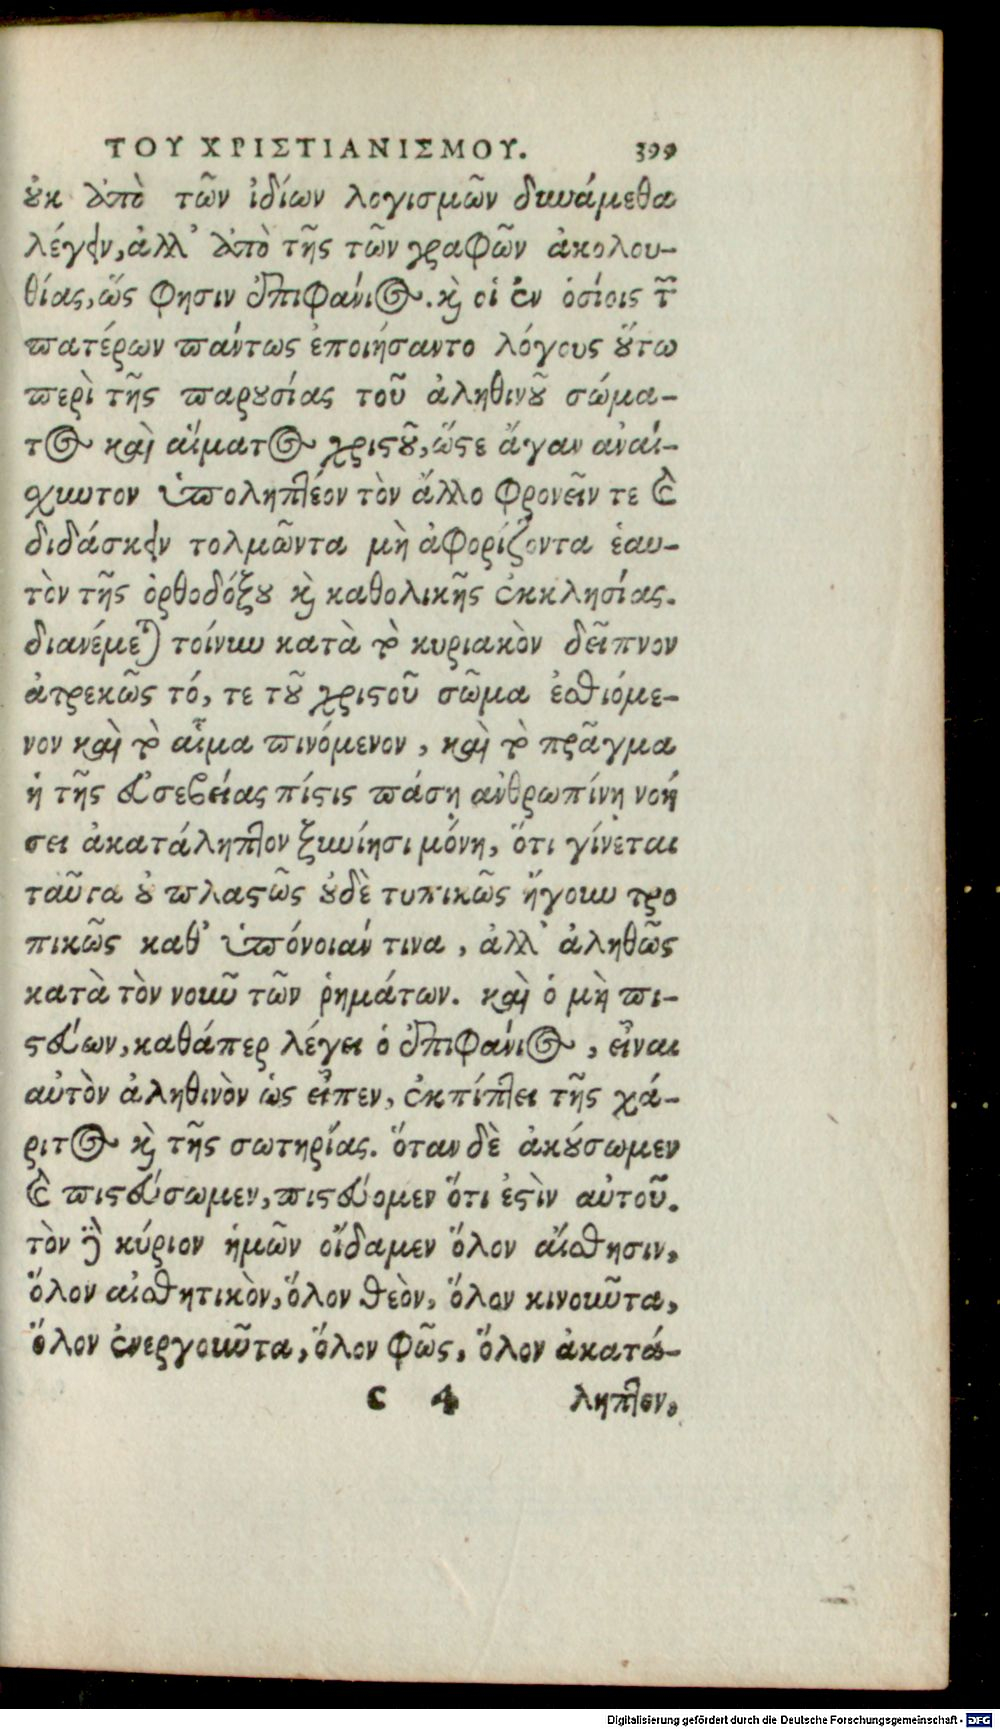 ΤΟΥ ΧΡΙΣΤΙΑΝΙΣΜΟΥ. 399
ȣκ ἀπὸ τῶν ἰδίων λογισμῶν δυνάμεθα
λέγειν, ἀλλ' ἀπὸ τῆς τῶν γραφῶν ἀκολου-
θίας, ὥς φησιν ἐπιφάνιος. ϗ οἱ ἐν ὁσίοις τ̃
πατέρων πάντως ἐποιήσαντο λόγους ȣ̔́τω
περὶ τῆς παρȣσίας τοῦ ἀληθινȣ͂ σώμα-
τος καὶ αἵματος χριϛȣ͂, ὥϛε ἄγαν ἀναί-
χυντον ὑποληπτέον τὸν ἄλλο φρονεῖν τε ϗ
διδάσκειν τολμῶντα μὴ ἀφορίζοντα ἑαυ-
τὸν τῆς ὀρθοδόξȣ ϗ καθολικῆς ἐκκλησίας.
διανέμε) τοίνυν κατὰ τὸ κυριακὸν δεῖπνον
ἀτρεκῶς τό, τε τȣ͂ χριϛοῦ σῶμα ἐσθιόμε-
νον καὶ τὸ αἷμα πινόμενον, καὶ τὸ πρᾶγμα
ἡ τῆς εὐσεβείας πίϛις πάσῃ ἀνθρωπίνῃ νοή
σει ἀκατάληπτον ξυνίησι μόνη, ὅτι γίνεται
ταῦτα ȣ̓ πλαϛῶς ȣ̓δὲ τυπικῶς ἤγουν τρο
πικῶς καθ' ὑπόνοιάν τινα, ἀλλ' ἀληθῶς
κατὰ τὸν νοῦν τῶν ῥημάτων. καὶ ὁ μὴ πι-
ϛεύων, καθάπερ λέγει ὁ ἐπιφάνιος, εἶναι
αὐτὸν ἀληθινὸν ὡς εἶπεν, ἐκπίπτει τῆς χά-
ριτος ϗ τῆς σωτηρίας. ὅταν δὲ ἀκȣ́σωμεν
ϗ πιϛεύσωμεν, πιϛεύομεν ὅτι ἐϛὶν αὐτοῦ.
τὸν γὰρ κύριον ἡμῶν οἴδαμεν ὅλον αἴσθησιν,
ὅλον αἰσθητικὸν, ὅλον θεὸν, ὅλον κινοῦντα,
ὅλον ἐνεργοῦντα, ὅλον φῶς, ὅλον ἀκατά-
c 4 ληπτον,
Digitalisierung gefördert durch die Deutsche Forschungsgemeinschaft - DFG